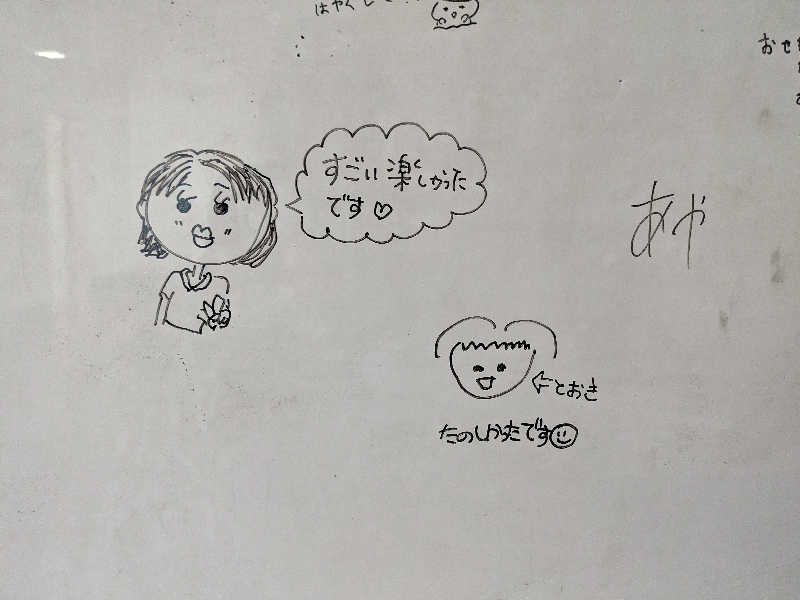 はやく
おせ
すごい楽しかった
です♡
あや
←とおき
たのしかったです☺